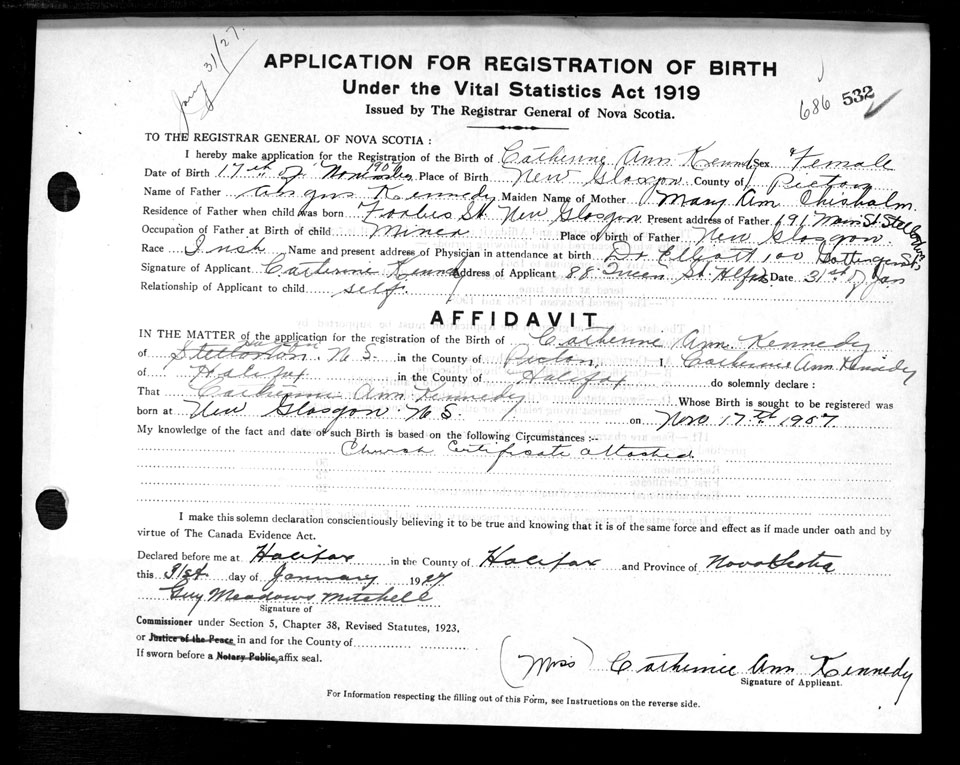 Jany 31/27.
APPLICATION FOR REGISTRATION OF BIRTH
Under the Vital Statistics Act 1919
Issued by The Registrar General of Nova Scotia.
686 532
TO THE REGISTRAR GENERAL OF NOVA SCOTIA :
I hereby make application for the Registration of the Birth of Catherine Ann Kennedy Sex Female
Date of Birth 17th of November 1907 Place of Birth New Glasgow County of Pictou
Name of Father Angus Kennedy Maiden Name of Mother Mary Ann Chisholm
Residence of Father when child was born Forbes St. New Glasgow Present address of Father 691 Main St. Stellarton
Occupation of Father at Birth of child Miner Place of birth of Father New Glasgow.
Race Irish Name and present address of Physician in attendance at birth Dr Elliott 100 Gottingen St.
Signature of Applicant Catherine Kennedy Address of Applicant 88 Queen St Hlfx Date 31st of Jan
Relationship of Applicant to child self.
AFFIDAVIT
IN THE MATTER of the application for registration of the Birth of Catherine Ann. Kennedy
of Stellarton. N.S. in the County of Pictou, I, Catherine Ann Kennedy
of Halifax in the County of Halifax do solemnly declare :
That Catherine Ann Kennedy Whose Birth is sought to be registered was
born at New Glasgow. N.S. on Nov. 17th 1907
My knowledge of the fact and date of such Birth is based on the following Circumstances :--
Church Certificate attached.
I make this solemn declaration conscientiously believing it to be true and knowing that it is of the same force and effect as if made under oath and by
virtue of The Canada Evidence Act.
Declared before me at Halifax in the County of Halifax and Province of Nova Scotia
this 31st day of January 1927
Guy Meadows Mitchell
Signature of
Commissioner under Section 5, Chapter 38, Revised Statutes, 1923,
or Justice of the Peace in and for the County of
If sworn before a Notary Public, affix seal.
(Miss) Catherine Ann Kennedy
Signature of Applicant.
For Information respecting the filling out of this Form, see Instructions on the reverse side.